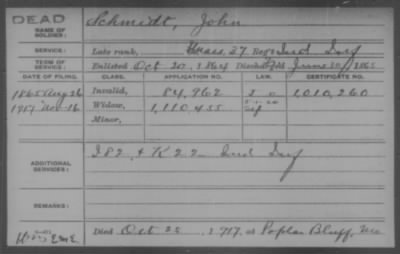 DEAD
NAME OF SOLDIER: Schmidt, John
SERVICE: Late rank, 37 Reg't Ind Inf
TERM OF SERVICE: Enlisted Oct 20, 1864 Discharged June 1865
DATE OF FILING. CLASS. APPLICATION NO. LAW. CERTIFICATE NO.
1865 Aug 26 Invalid, 84,962 1,010,260
1917 Nov 16 Widow, 1,110,455
Minor,
ADDITIONAL SERVICES: I 82 & K 22 Ind Inf
REMARKS:
Died Oct 25, 1917, at Poplar Bluff, Mo